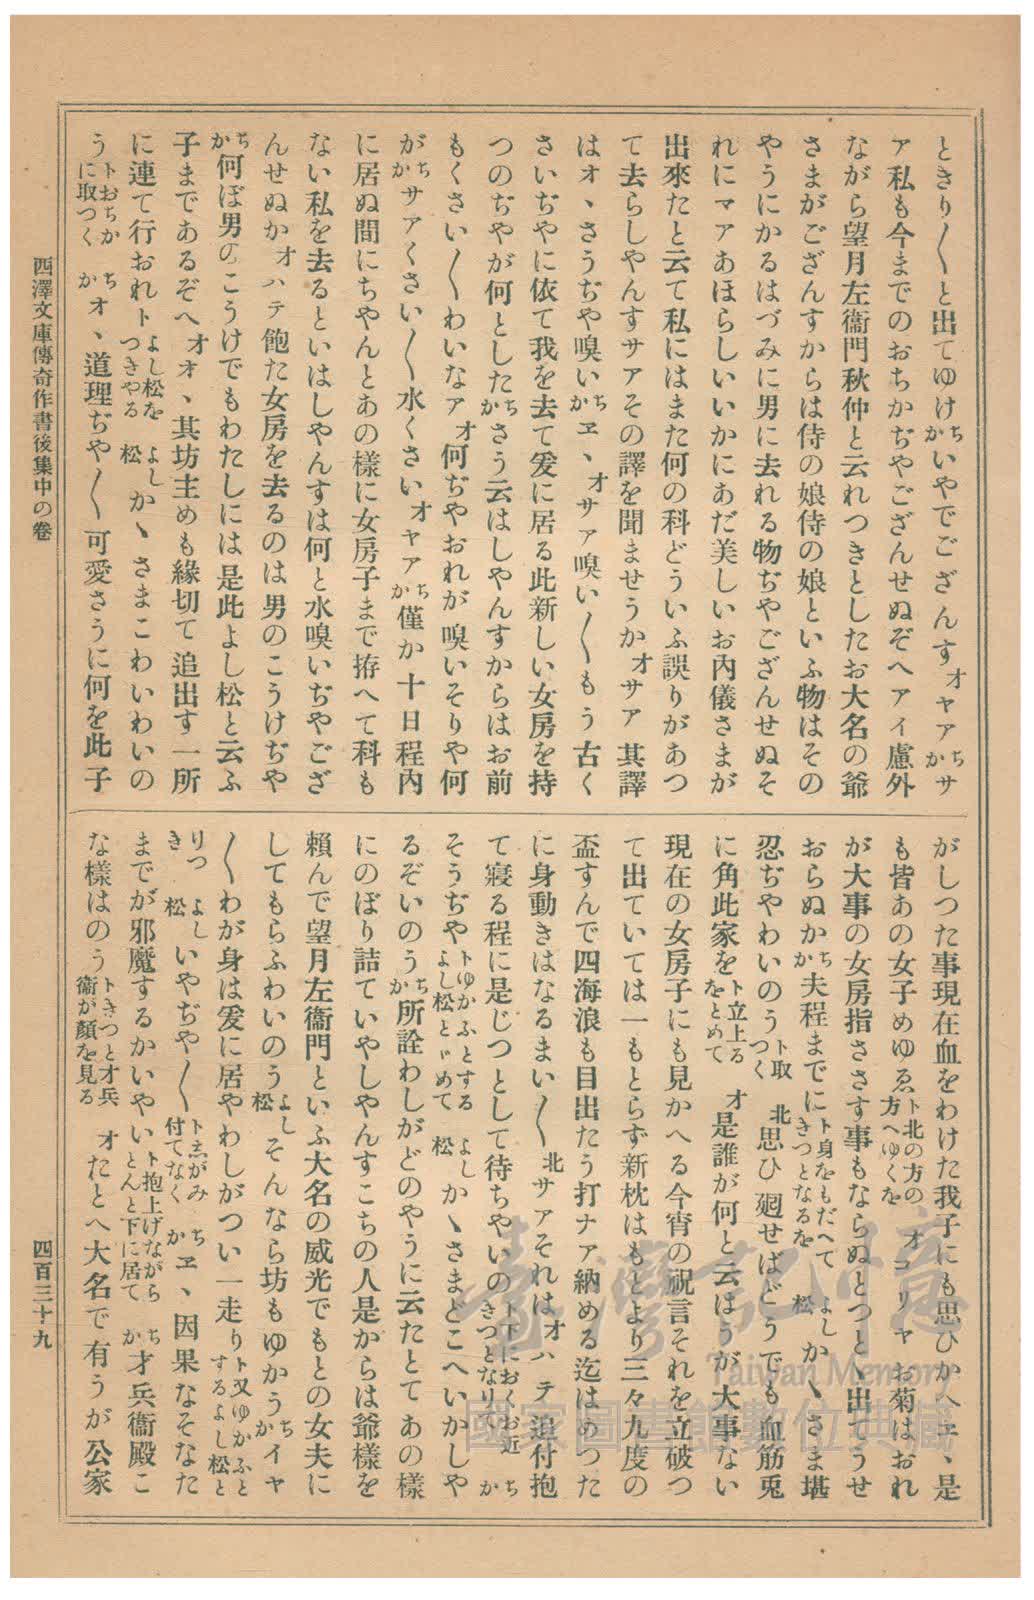 ときり〱と出てゆけかちいやでござんすオヤアかちサ
ア私も今までのおちかぢやござんせぬぞヘアイ慮外
ながら望月左衞門秋仲と云れつきとしたお大名の爺
さまがござんすからは侍の娘侍の娘といふ物はその
やうにかるはづみに男に去れる物ぢやござんせぬそ
れにマアあほらしいいかにあだ美しいお内儀さまが
出來たと云て私にはまた何の科どういふ誤りがあつ
て去らしやんすサアその譯を聞ませうかオサア其譯
はオヽさうぢや嗅いかちヱヽオサァ嗅い〱もう古く
さいぢやに依て我を去て爰に居る此新しい女房を持
つのぢやが何としたかちさう云はしやんすからはお前
もくさい〱わいなアオ何ぢやおれが嗅いそりや何
がかちサアくさい〱水くさいオヤアかち僅か十日程內
に居ぬ間にちやんとあの樣に女房子まで拵へて科も
ない私を去るといはしやんすは何と水嗅いぢやござ
んせぬかオハテ飽た女房を去るのは男のこうけぢや
かち何ぼ男のこうけでもわたしには是此よし松と云ふ
子まであるぞヘオオヽ其坊主めも緣切て追出す一所
に連て行おれトよし松をつきやるよし松かヽさまこわいわいの
うトおちかに取つくかちオヽ道理ぢや〱可愛さうに何を此子
がしつた事現在血をわけた我子にも思ひかへエヽ是
も皆あの女子めゆゑト北の方の方へゆくをオコリヤお菊はおれ
が大事の女房指ささす事もならぬとつとヽ出てうせ
おらぬかかち夫程までにト身をもだへてきつとなるをよし松かヽさま堪
忍ぢやわいのうト取つく北思ひ廻せばどうでも血筋兎
に角此家をト立上るをとめてオ是誰が何と云はうが大事ない
現在の女房子にも見かへる今宵の祝言それを立破つ
て出ていては一もとらず新枕はもとより三々九度の
盃すんで四海浪も目出たう打ナァ納める迄はめつた
に身動きはなるまい〱北サァそれはオハテ追付抱
て寢る程に是じつとして待ちやいのト下におくお近きつとなりてかち
そうぢやトゆかふとするよし松とゞめてよし松かヽさまどこへいかしや
るぞいのうかち所詮わしがどのやうに云たとてあの樣
にのぼり詰ていやしやんすこちの人是からは爺樣を
賴んで望月左衞門といふ大名の威光でもとの女夫に
してもらふわいのうよし松そんなら坊もゆかうかちイヤ
〱わが身は爰に居やわしがつい一走りト又ゆかふとするよし松と
りつきよし松いやぢや〱トゑがみ付てなくかちヱヽ因果なそなた
までが邪魔するかいやいト抱上げながらとんと下に居てかち才兵衞殿こ
な樣はのうトきつと才兵衞が顏を見るオたとへ大名で有うが公家
西澤文庫傳奇作書後集中の卷
四百三十九
臺灣記憶
Taiwan Memory
國家圖書館數位典藏